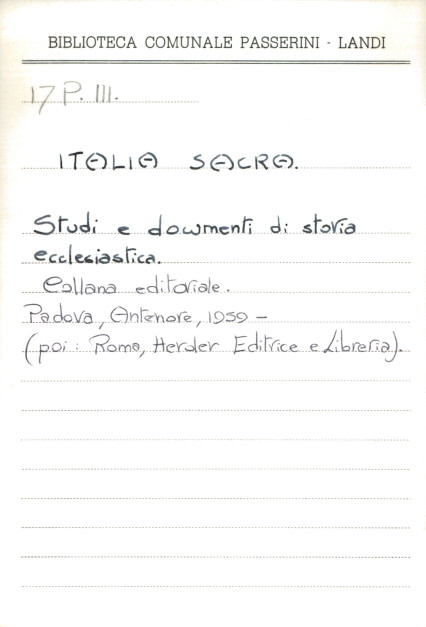 BIBLIOTECA COMUNALE PASSERINI - LANDI
17 P. III.
ITALIA SACRA.
Studi e documenti di storia
ecclesiastica.
Collana editoriale.
Padova, Antenore, 1959 -
(poi: Roma, Herder Editrice e Libreria).